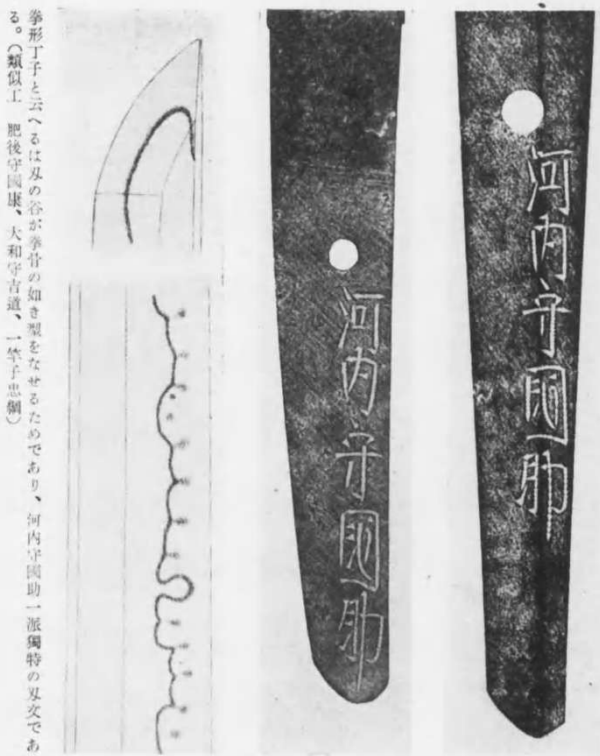 河内守國助
河内守國助
拳形丁子と云へるは刄の谷が拳骨の如き型をなせるためであり、河内守國助一派獨特の刄文であ
る。（類似工　肥後守國康、大和守吉道、一竿子忠綱）